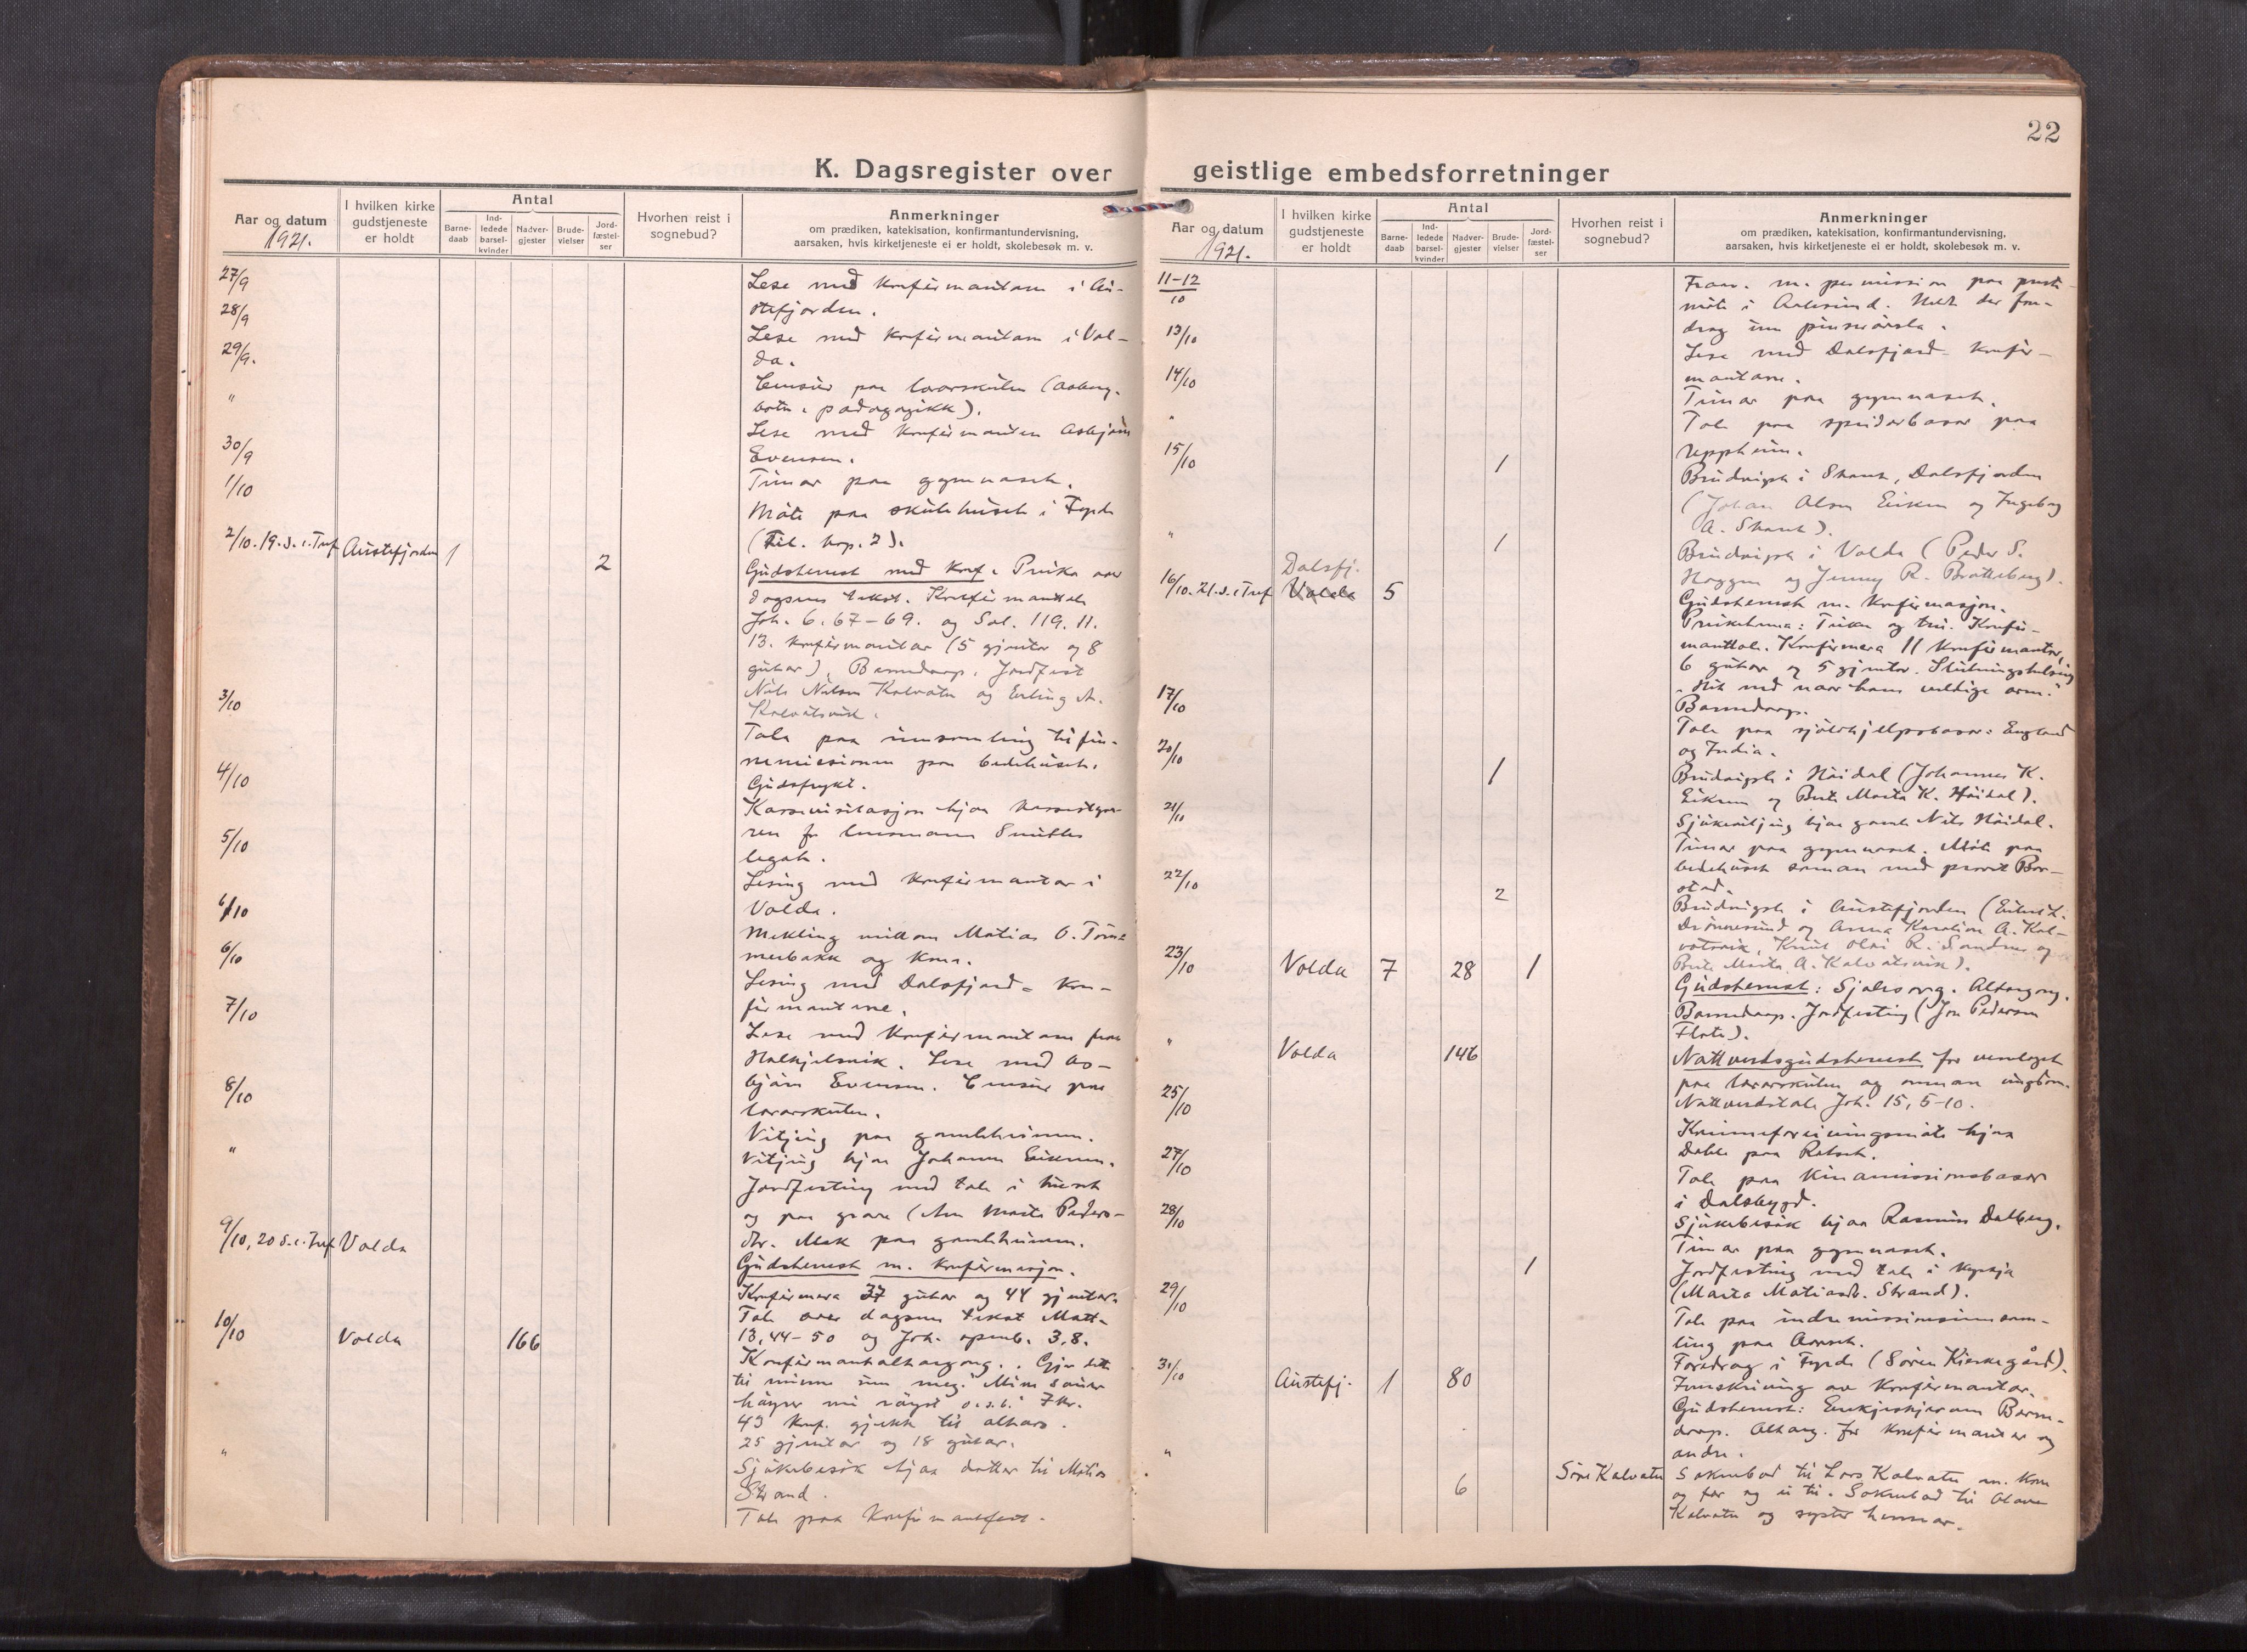 22
K. Dagsregister over
geistlige embedsforretninger
Aar og datum
1921.
I hvilken kirke
gudstjeneste
er holdt
Antal
Barne-
daab
Ind-
ledede
barsel-
kvinder
Nadver-
gjester
Brude-
vielser
Jord-
fæstel-
ser
Hvorhen reist i
sognebud?
Anmerkninger
om prædiken, katekisation, konfirmantundervisning,
aarsaken, hvis kirketjeneste ei er holdt, skolebesøk m. v.
27/9 Lese med konfirmantane i Au-
28/9 stefjorden.
Lese med konfirmantane i Vol-
29/9. da.
Censur paa lærarskulen
" pædagogikk).
Lese med konfirmanten Asbjørn
30/9 Evensen.
1/10 Timar paa gymnaset.
Møte paa skulehuset i Fyrde
2/10. 19. s. e. Tref Austefjorden 1 2 (Fil. kap. 2).
Gudstenest med konf. Preika over
dagsens tekst. Konfirmanttale
Joh. 6. 67-69. og Sal. 119. 11.
13. konfirmantar (5 gjentor og 8
gutar). Barnedaap. Jordfest
3/10 Nils Nilsen Kalvatn og Erling A.
Kalvatsvik.
Tale paa innsamling til fin-
nemisionen paa bedehuset.
4/10 Gudsfrykt.
Kassavisitasjon hjaa
5/10 legat.
Lesing med konfirmantar i
6/10 Volda.
Mekling millom Matias O. Tøm-
6/10 merbakk og kona.
Lesing med Dalsfjord-kon-
7/10 firmantane.
Lese med konfirmantane fraa
Lese med As-
8/10 bjørn Evensen. Censur paa
lærarskulen.
Vitjing paa gamleheimen.
" Vitjing hjaa Johannes Eiksun.
Jordfesting med tale i huset
og paa grava (Ane Marta Peders-
9/10, 20 s. e. Tref Volda dtr. Aksk paa gamleheimen.
Gudstenest m. konfirmasjon.
Konfirmera 37 gutar og 44 gjentor.
10/10 Tale over dagsens tekst Matt.
Volda 166 13, 44-50 og Joh. openb. 3, 8.
Konfirmantaltargong. "Gjer dette
til minne um meg." Mine sauer
høyrer mi røyst o.s.b."
43 konf. gjekk til altars.
25 gjentor og 18 gutar.
" Sjukebesøk hjaa dotter til Matias
Strand.
Tale paa konfirmantfest.
Aar og datum
1921.
I hvilken kirke
gudstjeneste
er holdt
Antal
Barne-
daab
Ind-
ledede
barsel-
kvinder
Nadver-
gjester
Brude-
vielser
Jord-
fæstel-
ser
Hvorhen reist i
sognebud?
Anmerkninger
om prædiken, katekisation, konfirmantundervisning,
aarsaken, hvis kirketjeneste ei er holdt, skolebesøk m. v.
11-12/10 Frav. m. permission paa preste-
møte i Aalesund. Heldt der fore-
13/10 drag um pinserørsla.
Lese med Dalsfjord-konfir-
14/10 mantane.
Timar paa gymnaset.
" Tale paa speidarbasar paa
15/10 1 Uppheim.
Brudvigsle i Skaut, Dalsfjorden
(Johan Olsen Eiksun og Ingeborg
A. Skaut).
" 1 Brudvigsle i Volda (Peder S.
Dalsfj. Haggen og Jenny R. Bratteberg).
16/10. 21. s. e. Tref Volda 5 Gudstenest m. konfirmasjon.
Preiketema: Teikn og tru. Konfir-
manttale. Konfirmera 11 konfirmantar,
6 gutar og 5 gjentor. Slutningshelsing
17/10 "Hit ned naar hans veldige arm."
Barnedaap.
Tale paa sjølvhjelpsbasar: England
20/10 og India.
1 Brudvigsle i Høidal (Johannes K.
Eiksun og Berte Marta K. Høidal).
21/10 Sjukevitjing hjaa gamle Nils Høidal.
Timar paa gymnaset. Møte paa
22/10 bedehuset saman med prost Bor-
2 stad.
Brudvigsle i Austefjorden
og Anna Karoline A. Kal-
23/10 vatsvik, Knut Olai R. Sandnes og
Volda 7 28 1 Berte Marta A. Kalvatsvik).
Gudstenest: Sjelesorg. Altargong.
Barnedaap. Jordfesting (Jon Pedersen
Flote).
" Volda 146 Nattverdsgudstenest for venelaget
25/10 paa lærarskulen og annan ungdom.
Nattverdstale Joh. 15, 5-10.
Kvinneforeiningsmøte hjaa
27/10 Dahle paa Rotset.
Tale paa Kinamissionsbasar
28/10 i Dalsbygd.
Sjukebesøk hjaa Rasmus Dalberg.
1 Timar paa gymnaset.
Jordfesting med tale i kyrkja
29/10 (Marta Matiasdtr. Strand).
Tale paa indremissionsinnsam-
ling paa Aarset.
30/10 Foredrag i Fyrde (Søren Kierkegård).
Austefj. 1 80 Innskriving av konfirmantar.
Gudstenest: Barne-
daap. Altarg. for konfirmantar og
" andre.
Søre Kalvatn Soknebod til Lars Kalvatn m. kone
6 og far og ei til. Soknebod til Olave
Kalvatn og syster hennar.